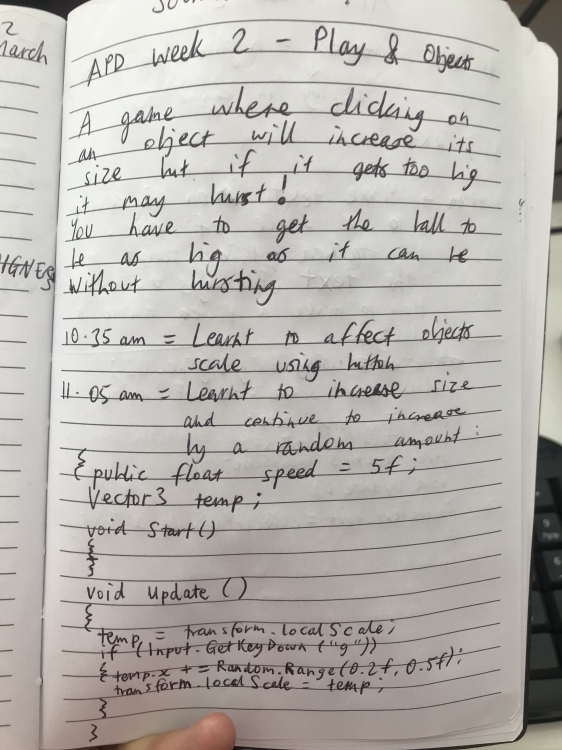 2
March
IGNES
APD Week 2 - Play & Objects
A game where clicking on
an object will increase its
size but if it gets too big
it may burst!
You have to get the ball to
be as big as it can be
without bursting
10.35 am = Learnt to affect objects
scale using button
11.05 am = Learnt to increase size
and continue to increase
by a random amount:
{ public float speed = 5f;
Vector3 temp;
void Start()
{
}
void Update ()
{
temp = transform.localScale;
if (Input.GetKeyDown ("g"))
{ temp.x += Random.Range(0.2f, 0.5f);
transform.localScale = temp;
}
}